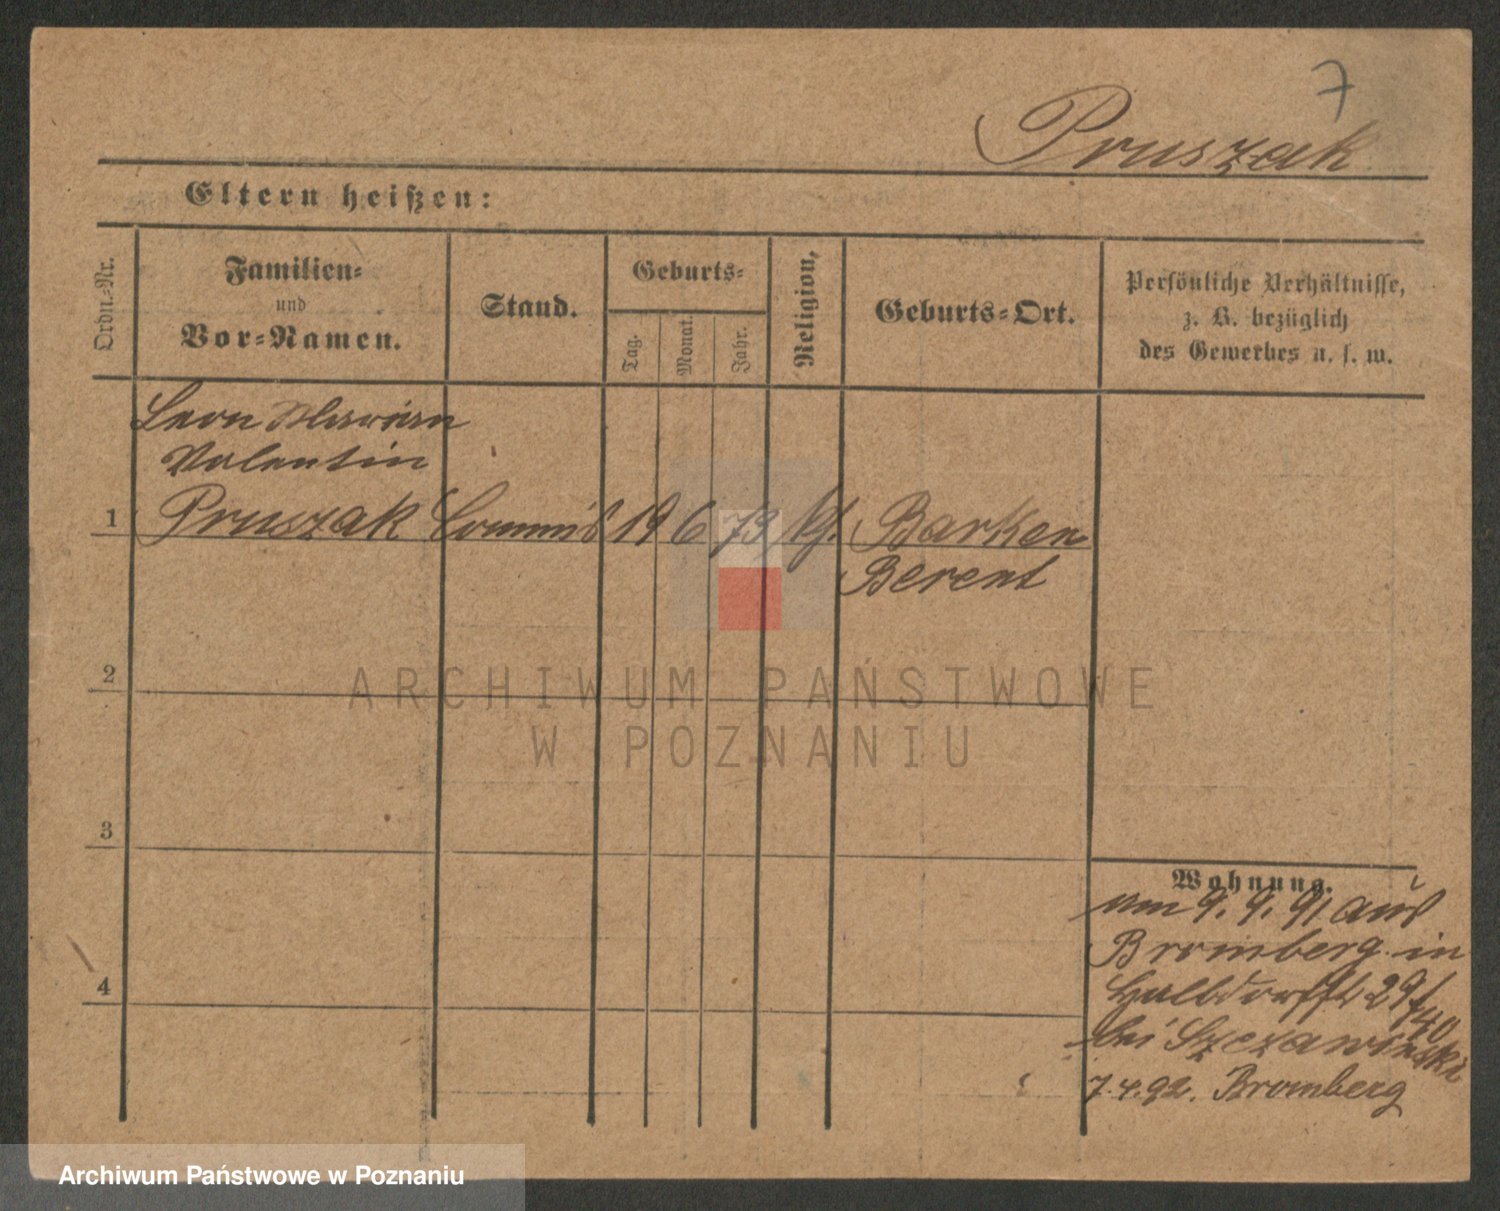 7
Pruszak
Eltern heißen:
Ordn.-Nr.
Familien-
und
Vor-Namen.
Stand.
Geburts-
Tag.
Monat.
Jahr.
Religion.
Geburts-Ort.
Persönliche Verhältnisse,
z. B. bezüglich
des Gewerbes u. s. w.
Leon Marian
Valentin
1 Pruszak Commis 19 6 73 Barken
Berent
2
3
4
Wohnung.
9. 9. 91 aus
Bromberg in
Halbdorfst 29/40
bei Szczawinski
7. 4. 92. Bromberg
ARCHIWUM PAŃSTWOWE
W POZNANIU
Archiwum Państwowe w Poznaniu